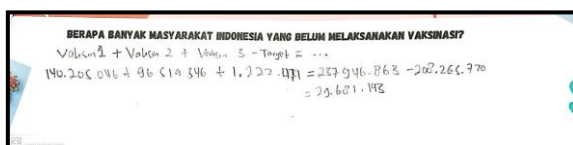 BERAPA BANYAK MASYARAKAT INDONESIA YANG BELUM MELAKSANAKAN VAKSINASI?
Vaksin 1 + Vaksin 2 + Vaksin 3 - Target = ...
140.205.046 + 96.519.346 + 1.222.471 = 237.946.863 - 208.265.720
= 29.681.143